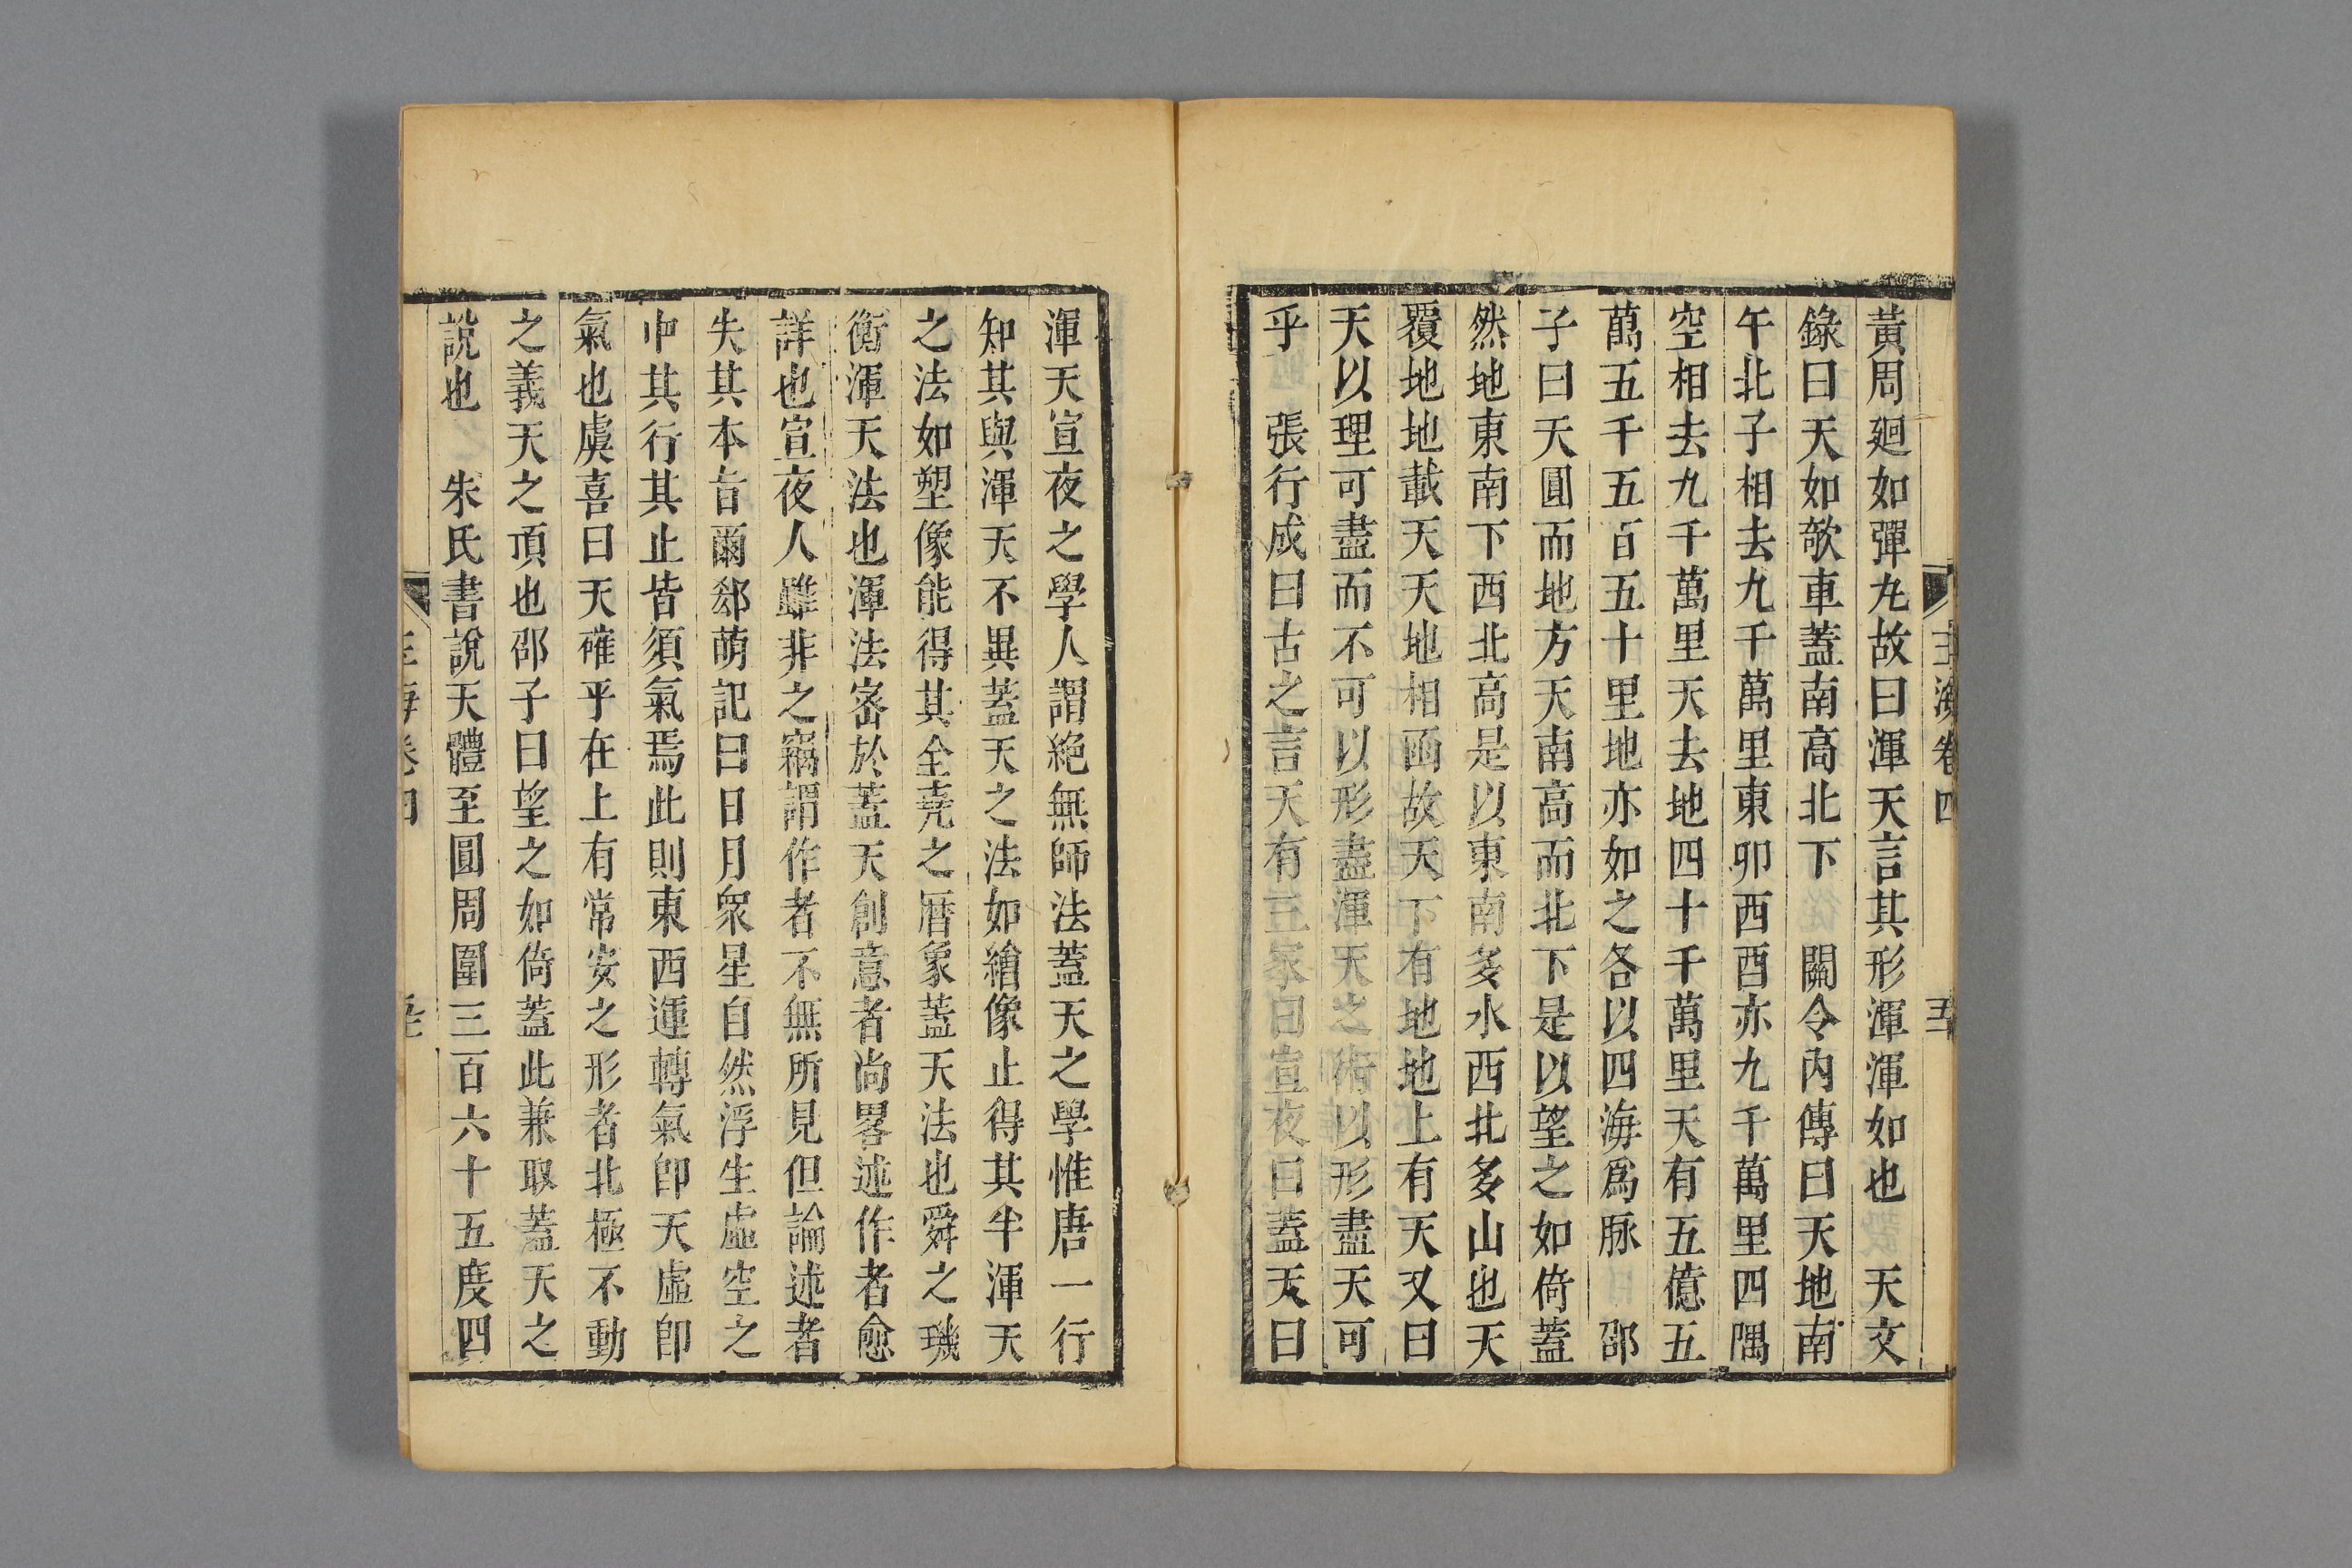 黃周廻如彈丸故曰渾天言其形渾渾如也　天文
錄曰天如欹車蓋南高北下　關令內傳曰天地南
午北子相去九千萬里東卯西酉亦九千萬里四隅
空相去九千萬里天去地四十千萬里天有五億五
萬五千五百五十里地亦如之各以四海爲脉　邵
子曰天圓而地方天南高而北下是以望之如倚蓋
然地東南下西北高是以東南多水西北多山也天
覆地地載天天地相函故天下有地地上有天又曰
天以理可盡而不可以形盡渾天之術以形盡天可
乎　張行成曰古之言天有三家曰宣夜曰蓋天曰
渾天宣夜之學人謂絕無師法蓋天之學惟唐一行
知其與渾天不異蓋天之法如繪像止得其半渾天
之法如塑像能得其全堯之曆象蓋天法也舜之璣
衡渾天法也渾法密於蓋天創意者尚畧述作者愈
詳也宣夜人雖非之竊謂作者不無所見但論述者
失其本旨爾郄萌記曰日月衆星自然浮生虛空之
中其行其止皆須氣焉此則東西運轉氣卽天虛卽
氣也虞喜曰天確乎在上有常安之形者北極不動
之義天之頂也邵子曰望之如倚蓋此兼取蓋天之
說也　朱氏書說天體至圓周圍三百六十五度四
玉海卷四
五